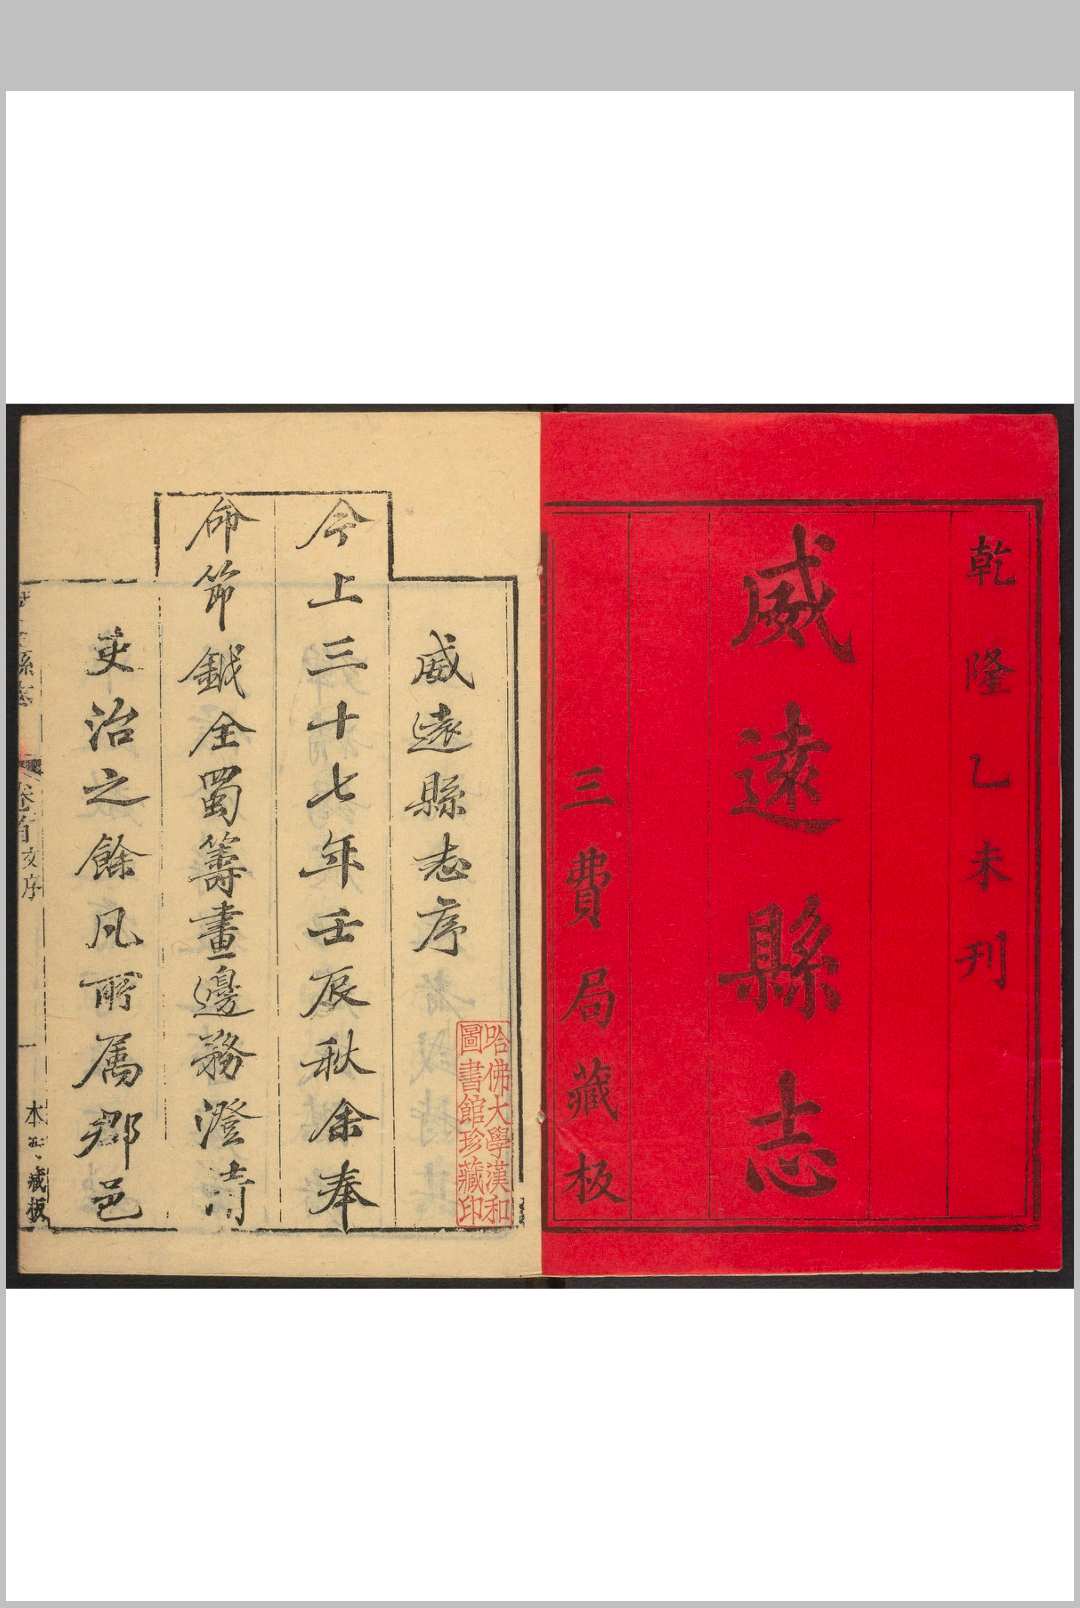 乾隆乙未刊
威遠縣志
三費局藏板
威遠縣志序
今上三十七年壬辰秋余奉
命節鉞全蜀籌畫邊務澄清
吏治之餘凡所属郡邑
縣志
卷首
序
本
藏板
哈佛大學漢和
圖書館珍藏印